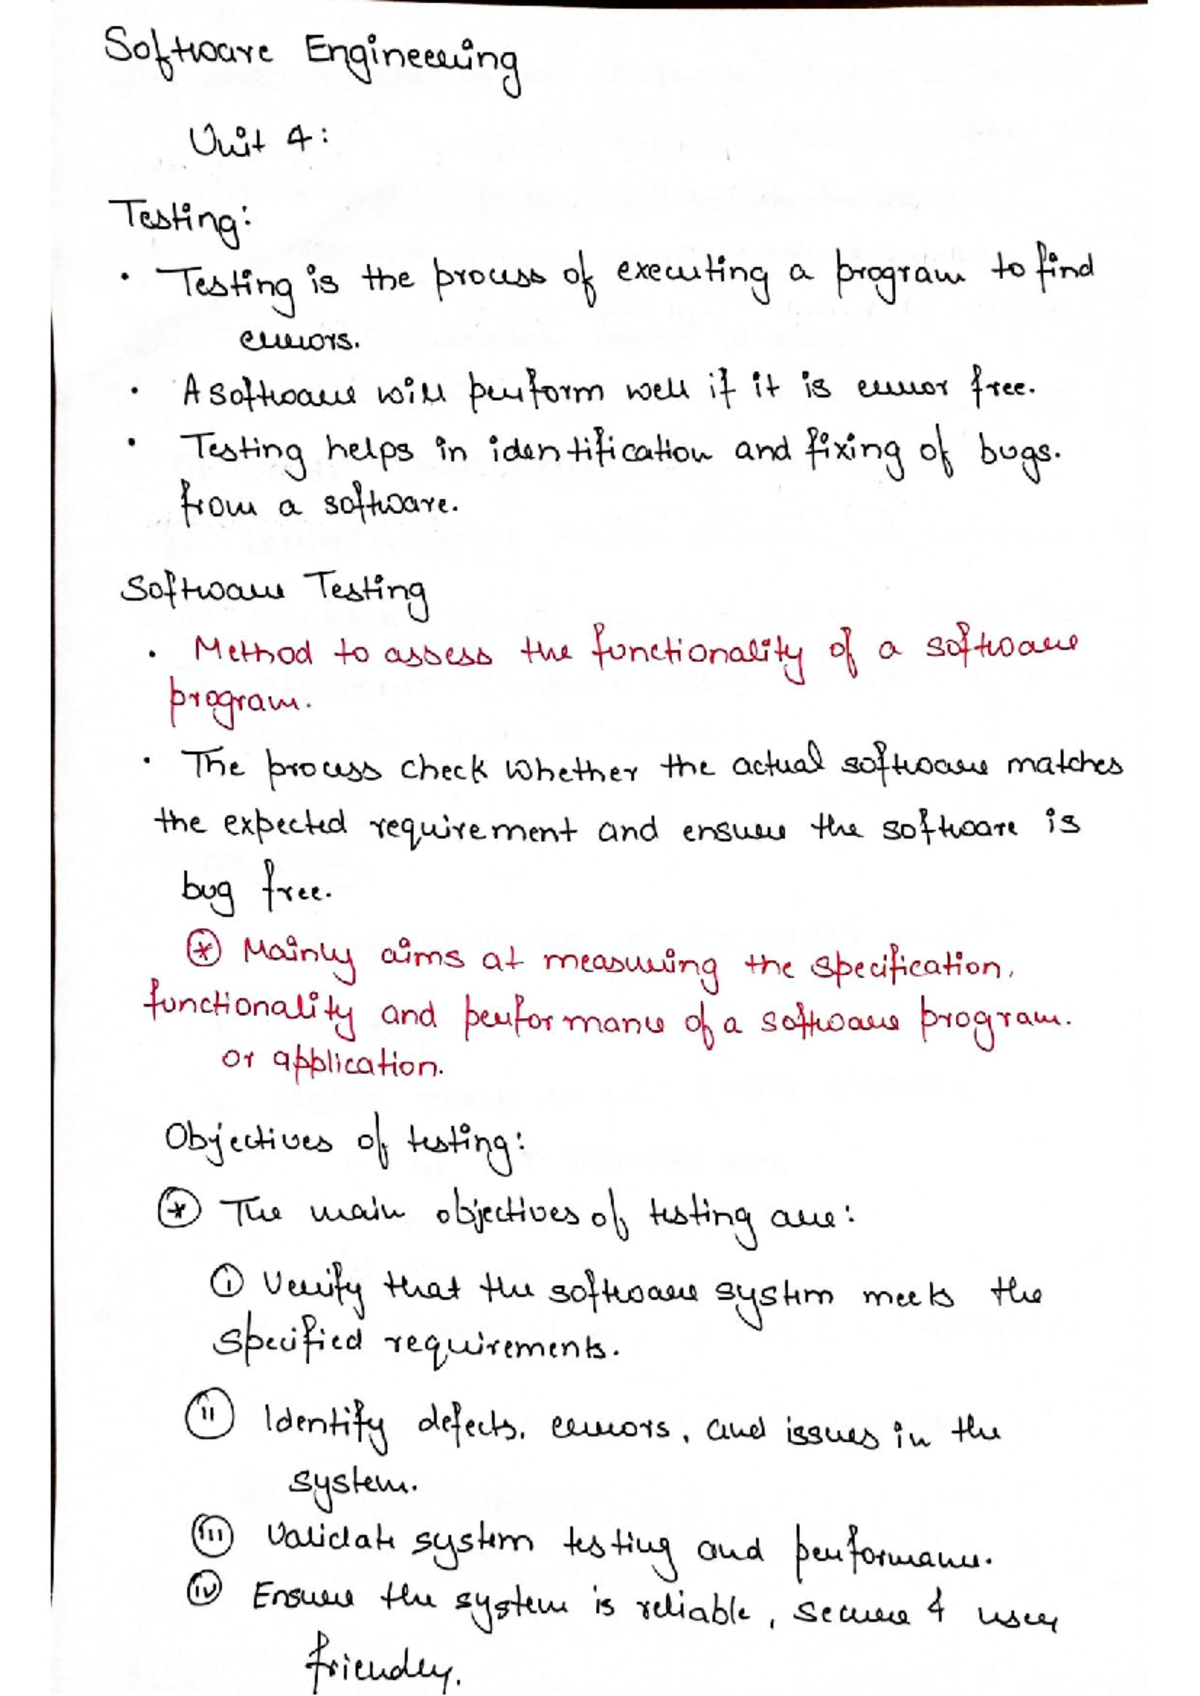 Software Engineering
Unit 4:
Testing:
• Testing is the process of executing a program to find
errors.
• A software will perform well if it is error free.
• Testing helps in identification and fixing of bugs.
from a software.
Software Testing
• Method to assess the functionality of a software
program.
• The process check whether the actual software matches
the expected requirement and ensure the software is
bug free.
* Mainly aims at measuring the specification,
functionality and performance of a software program.
or application.
Objectives of testing:
* The main objectives of testing are:
i Verify that the software system meets the
specified requirements.
ii Identify defects, errors, and issues in the
system.
iii Validate system testing and performance.
iv Ensure the system is reliable, secure & user
friendly.